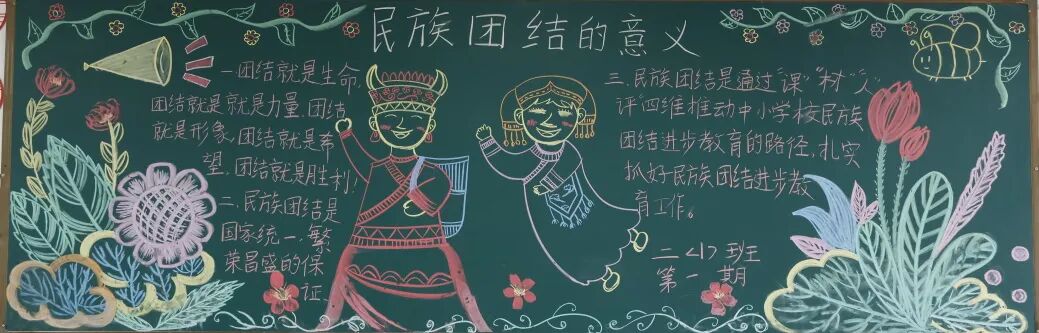 民族团结的意义
一.团结就是生命,
团结就是就是力量.团结
就是形象,团结就是希
望.团结就是胜利!
二.民族团结是
国家统一,繁
荣昌盛的保
证.
三.民族团结是通过"课""材""人"
评"四维推动中小学校民族
团结进步教育的路径,扎实
抓好民族团结进步教
育工作。
二<1>班
第一期